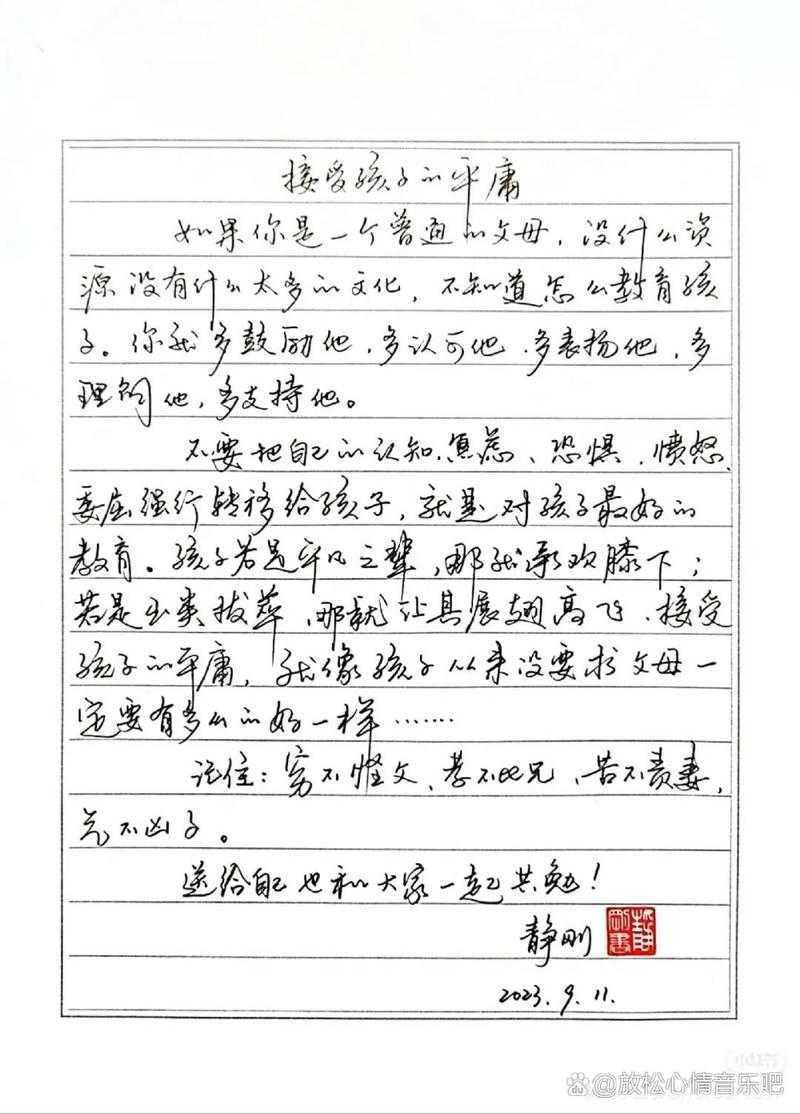 接受孩子的平庸
如果你是一个普通的父母，没什么资
源没有什么太多的文化，不知道怎么教育孩
子。你就多鼓励他，多认可他，多表扬他，多
理解他，多支持他。
不要把自己的认知、焦虑、恐惧、愤怒、
委屈强行转移给孩子，就是对孩子最好的
教育。孩子若是平凡之辈，那就承欢膝下；
若是出类拔萃，那就让其展翅高飞。接受
孩子的平庸，就像孩子从来没要求父母一
定要有多么的好一样……
记住：穷不怪父、孝不比兄、苦不责妻，
气不凶子。
送给自己也和大家一起共勉！
静刚
静刚书
2023.9.11.
小红书
百家号@放松心情音乐吧